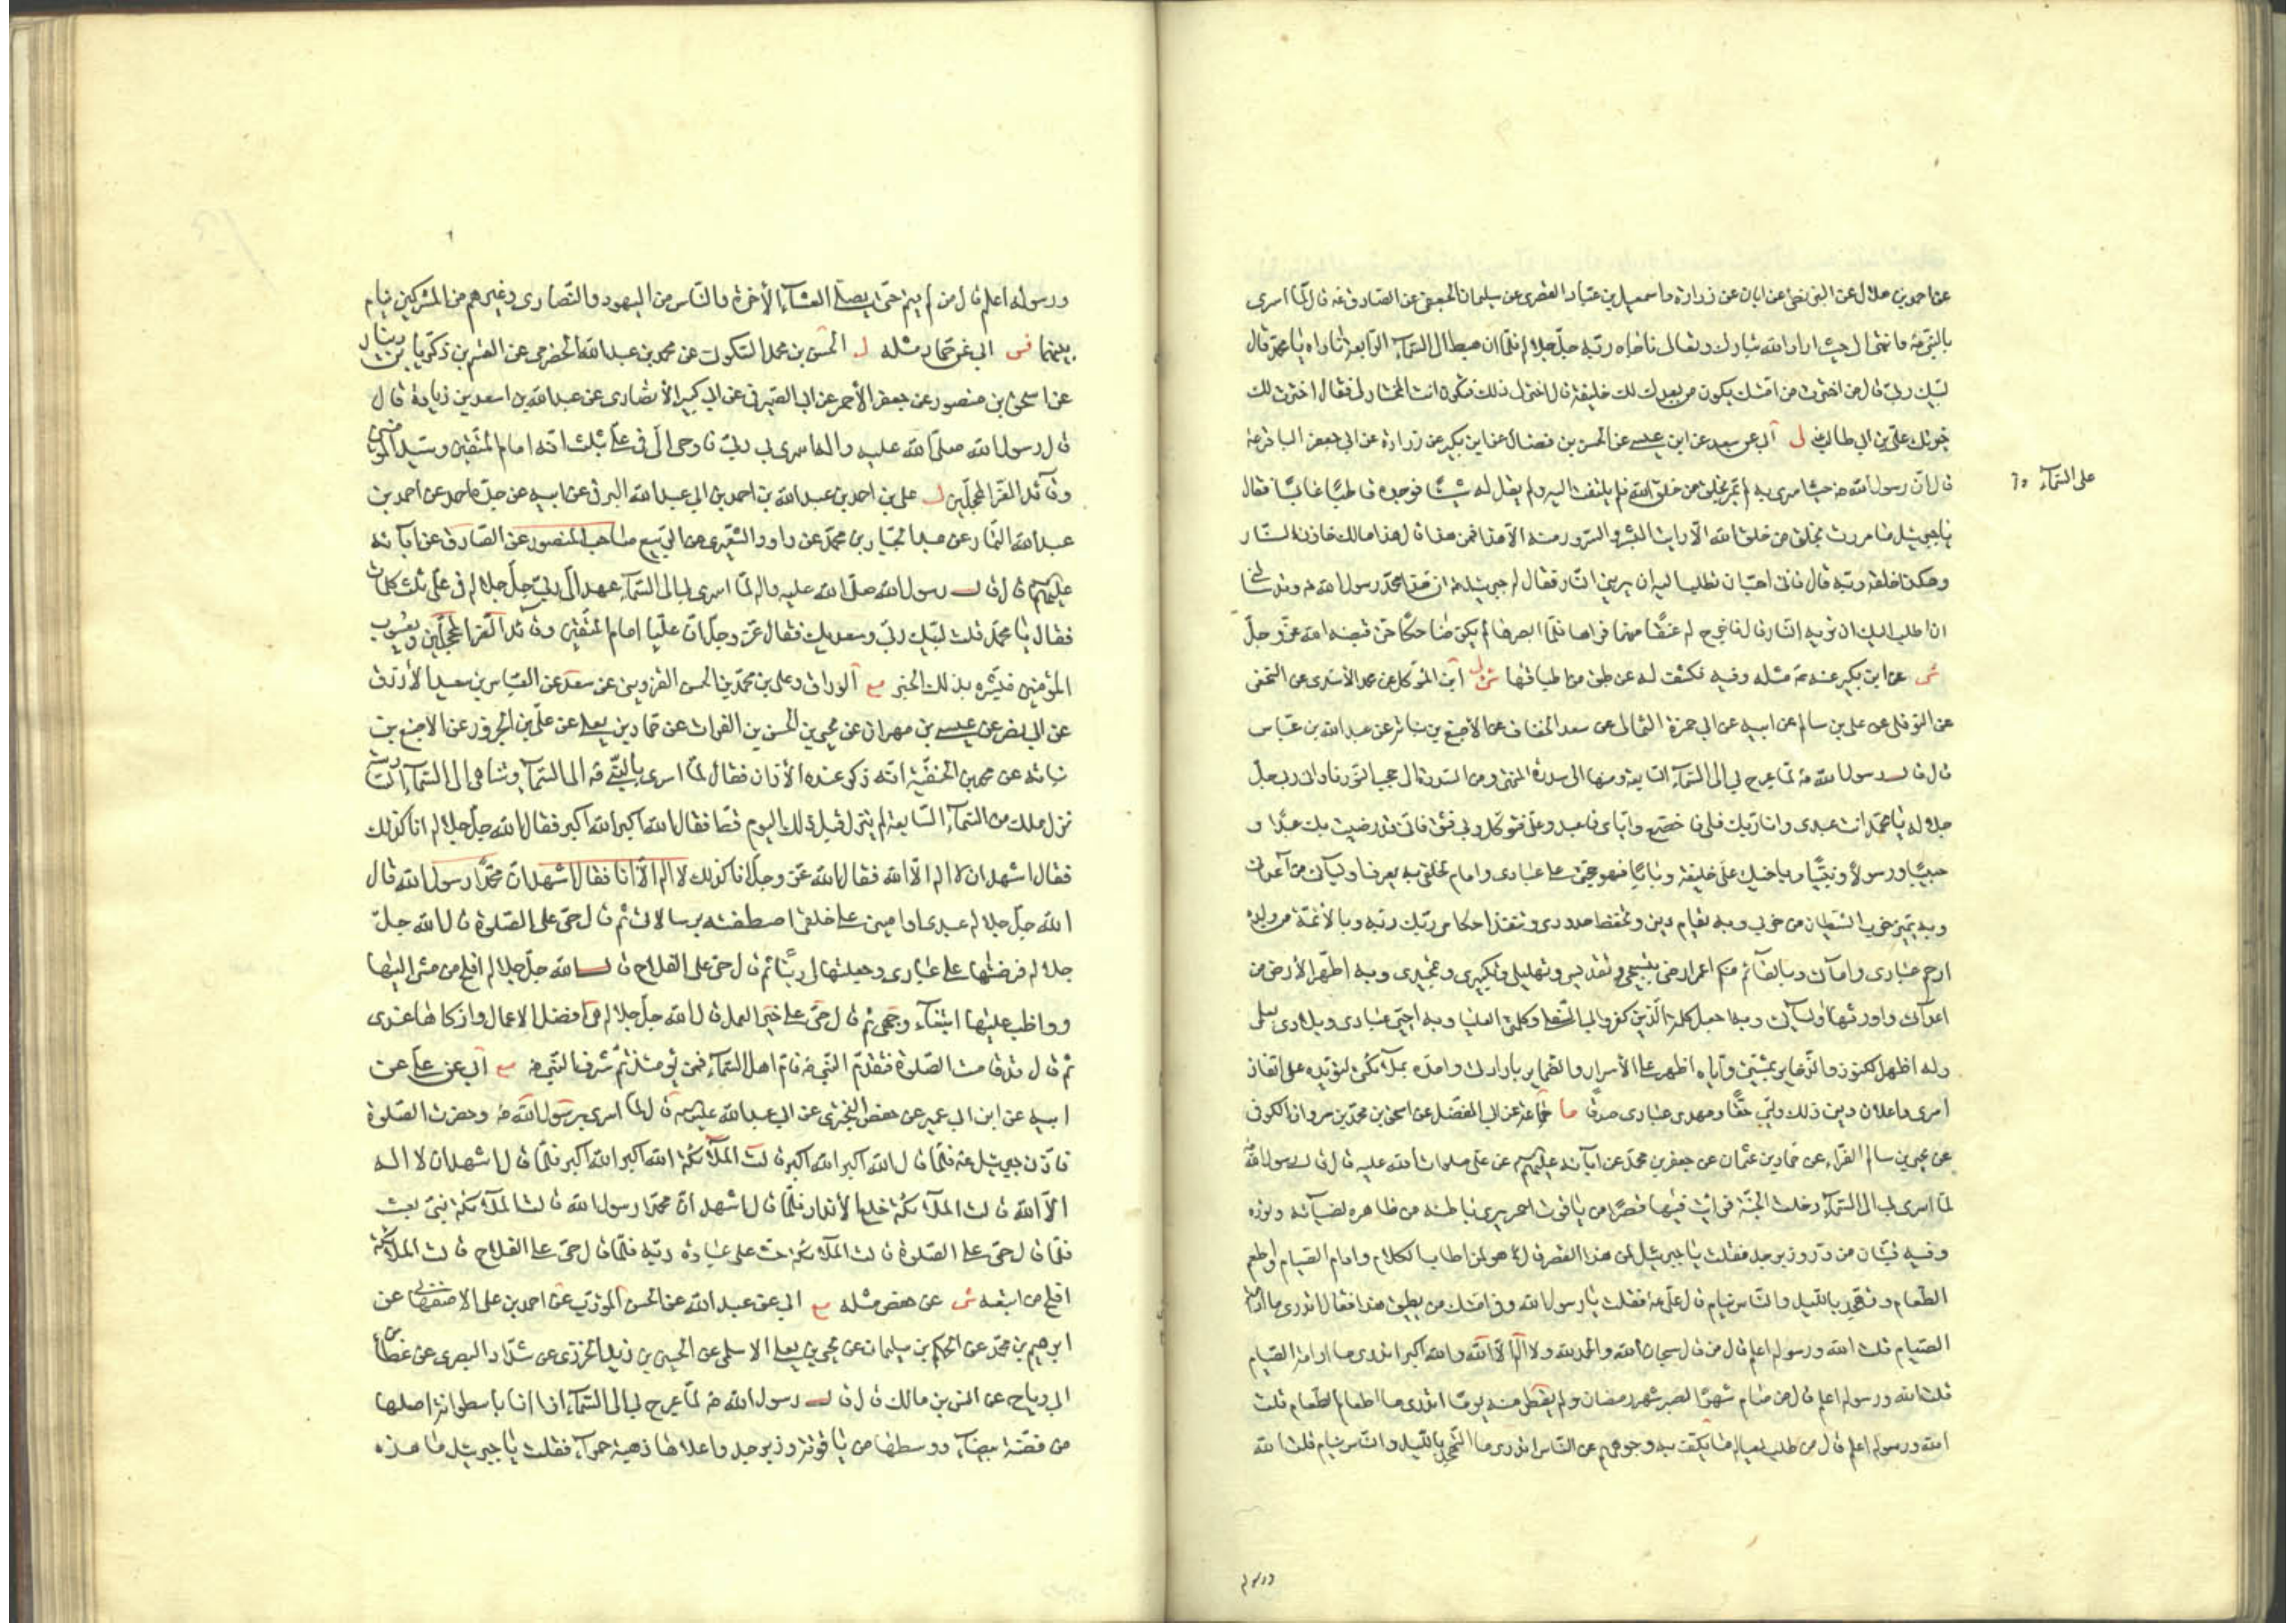 عن احمد بن هلال عن البزنطي عن ابان عن زرارة واسمعيل بن عباد القصري عن سليمان الجعفي عن الصادق عه قال لما اسرى
بالنبي صه وانتهى الى حيث اراد الله تبارك وتعالى ناجاه ربه جل جلاله فلما ان هبط الى السماء الرابعة ناداه يا محمد قال
لبيك ربي قال من اخترت من امتك يكون من بعدك لك خليفة قال اختر لي ذلك فتكون انت المختار لي فقال اخترت لك
خيرتك علي بن ابي طالب ل ابي عن سعد عن ابن عيسى عن الحسن بن فضال عن ابن بكير عن زرارة عن ابي جعفر الباقر عه
قال ان رسول الله صه حيث اسرى به لم يمر بخلق من خلق الله فلم يلتفت اليه ولم يقل له شيئا فوجده قاطبا عابسا فقال
على السماء
يا جبرئيل ما مررت بخلق من خلق الله الا رايت البشر والسرور منه الا هذا فمن هذا قال هذا مالك خازن النار
وهكذا خلقه ربه قال فاني احب ان تطلب اليه ان يريني النار فقال له جبرئيل عه ان هذا محمد رسول الله صه وقد سالني
ان اطلب اليك ان تريه النار قال فاخرج له عنقا منها فراها فلما ابصرها لم يكن ضاحكا حتى قبضه الله عز وجل
شى عن ابن بكير عنه عه مثله وفيه فكشف له عن طبق من اطباقها ابن المتوكل عن محمد الاسدي عن النخعي
عن النوفلي عن علي بن سالم عن ابيه عن ابي حمزة الثمالي عن سعد الخفاف عن الاصبغ بن نباتة عن عبد الله بن عباس
قال قال رسول الله صه لما عرج بي الى السماء السابعة ومنها الى سدرة المنتهى ومن السدرة الى حجب النور ناداني ربي جل
جلاله يا محمد انت عبدي وانا ربك فلي فاخضع واياي فاعبد وعلي فتوكل وبي فثق فاني قد رضيت بك عبدا و
حبيبا ورسولا ونبيا وباخيك علي خليفة وبابا فهو حجتي على عبادي وامام لخلقي به يعرف اوليائي من اعدائي
وبه يميز حزب الشيطان من حزبي وبه يقام ديني وتحفظ حدودي وتنفذ احكامي وبك وبه وبالائمة من ولده
ارحم عبادي وامائي وبالقائم منكم اعمر ارضي بتسبيحي وتقديسي وتهليلي وتكبيري وتمجيدي وبه اطهر الارض من
اعدائي واورثها اوليائي وبه اجعل كلمة الذين كفروا بي السفلى وكلمتي العليا وبه احيي عبادي وبلادي بعلمي
وله اظهر الكنوز والذخاير بمشيتي واياه اظهر على الاسرار والضماير بارادتي وامده بملائكتي لتؤيده على انفاذ
امري واعلان ديني ذلك وليي حقا ومهدي عبادي صدقا ما جماعة عن ابي المفضل عن اسحق بن محمد بن مروان الكوفي
عن يحيى بن سالم الفراء عن حماد بن عثمان عن جعفر بن محمد عن ابائه عليهم عن علي صلوات الله عليه قال قال رسول الله
لما اسرى بي الى السماء دخلت الجنة فرايت فيها قصرا من ياقوت احمر يرى باطنه من ظاهره لضيائه ونوره
وفيه قبتان من در وزبرجد فقلت يا جبرئيل لمن هذا القصر قال هو لمن اطاب الكلام وادام الصيام واطعم
الطعام وتهجد بالليل والناس نيام قال علي عه فقلت يا رسول الله وفي امتك من يطيق هذا فقال اتدري ما ادامة
الصيام قلت الله ورسوله اعلم قال من قال سبحان الله والحمد لله ولا اله الا الله والله اكبر اتدري ما ادامة الصيام
قلت الله ورسوله اعلم قال من صام شهر الصبر شهر رمضان ولم يفطر منه يوما اتدري ما اطعام الطعام قلت
الله ورسوله اعلم قال من طلب لعياله ما يكف به وجوههم عن الناس اتدري ما التهجد بالليل والناس نيام قلت الله
ورسوله
ورسوله اعلم قال من لم ينم حتى يصلي العشاء الاخرة والناس من اليهود والنصارى وغيرهم من المشركين نيام
بينهما فس ابي عن حماد مثله ل الحسن بن محمد السكوني عن محمد بن عبد الله الحضرمي عن القسم بن زكريا بن دينار
عن اسحق بن منصور عن جعفر الاحمر عن ابي الصيرفي عن ابي كبير الانصاري عن عبد الله بن اسعد بن زرارة قال
قال رسول الله صلى الله عليه واله اسرى بي ربي فاوحى الي في علي بثلث انه امام المتقين وسيد المؤمنين
وقائد الغر المحجلين ل علي بن احمد بن عبد الله بن احمد بن ابي عبد الله البرقي عن ابيه عن جده احمد عن احمد بن
عبد الله عن عبد الجبار بن محمد عن داود الشعيري عن الربيع صاحب المنصور عن الصادق عن ابائه
عليهم قال قال رسول الله صلى الله عليه واله لما اسرى بي الى السماء عهد الي ربي جل جلاله في علي ثلث كلمات
فقال يا محمد قلت لبيك ربي وسعديك فقال عز وجل ان عليا امام المتقين وقائد الغر المحجلين ويعسوب
المؤمنين فبشره بذلك الخبر مع الوراق وعلي بن محمد بن الحسن القزويني عن سعد عن العباس بن سعيد الازرق
عن ابي نصر عن عيسى بن مهران عن يحيى بن الحسن بن الفرات عن حماد بن يعلى عن علي بن الحزور عن الاصبغ بن
نباتة عن محمد بن الحنفية انه ذكر عنده الاذان فقال لما اسرى بالنبي صه الى السماء وتناهى الى السماء السادسة
نزل ملك من السماء السابعة لم ينزل قبل ذلك اليوم قط فقال الله اكبر الله اكبر فقال الله جل جلاله انا كذلك
فقال اشهد ان لا اله الا الله فقال الله عز وجل انا كذلك لا اله الا انا فقال اشهد ان محمدا رسول الله قال
الله جل جلاله عبدي واميني على خلقي اصطفيته برسالاتي ثم قال حي على الصلوة قال الله جل
جلاله فرضتها على عبادي وجعلتها لي دينا ثم قال حي على الفلاح قال الله جل جلاله افلح من مشى اليها
وواظب عليها ابتغاء وجهي ثم قال حي على خير العمل قال الله جل جلاله هي افضل الاعمال وازكاها عندي
ثم قال قد قامت الصلوة فتقدم النبي صه فام اهل السماء فمن يومئذ تم شرف النبي صه مع ابي عن علي عن
ابيه عن ابن ابي عمير عن حفص البختري عن ابي عبد الله عليه قال لما اسرى برسول الله صه وحضرت الصلوة
فاذن جبرئيل عه فلما قال الله اكبر الله اكبر قالت الملائكة الله اكبر الله اكبر فلما قال اشهد ان لا اله
الا الله قالت الملائكة خلع الانداد فلما قال اشهد ان محمدا رسول الله قالت الملائكة نبي بعث
فلما قال حي على الصلوة قالت الملائكة حث على عبادة ربه فلما قال حي على الفلاح قالت الملائكة
افلح من اتبعه شى عن حفص مثله مع ابي عن عبد الله عن الحسن المؤدب عن احمد بن علي الاصفهاني عن
ابرهيم بن محمد عن الحكم بن سليمان عن يحيى بن يعلى الاسلمي عن الحسين بن زيد الخزري عن شداد البصري عن عطاء بن
ابي رياح عن انس بن مالك قال قال رسول الله صه لما عرج بي الى السماء اذا انا باسطوانة اصلها
من فضة بيضاء ووسطها من ياقوتة وزبرجد واعلاها ذهبة حمراء فقلت يا جبرئيل ما هذه